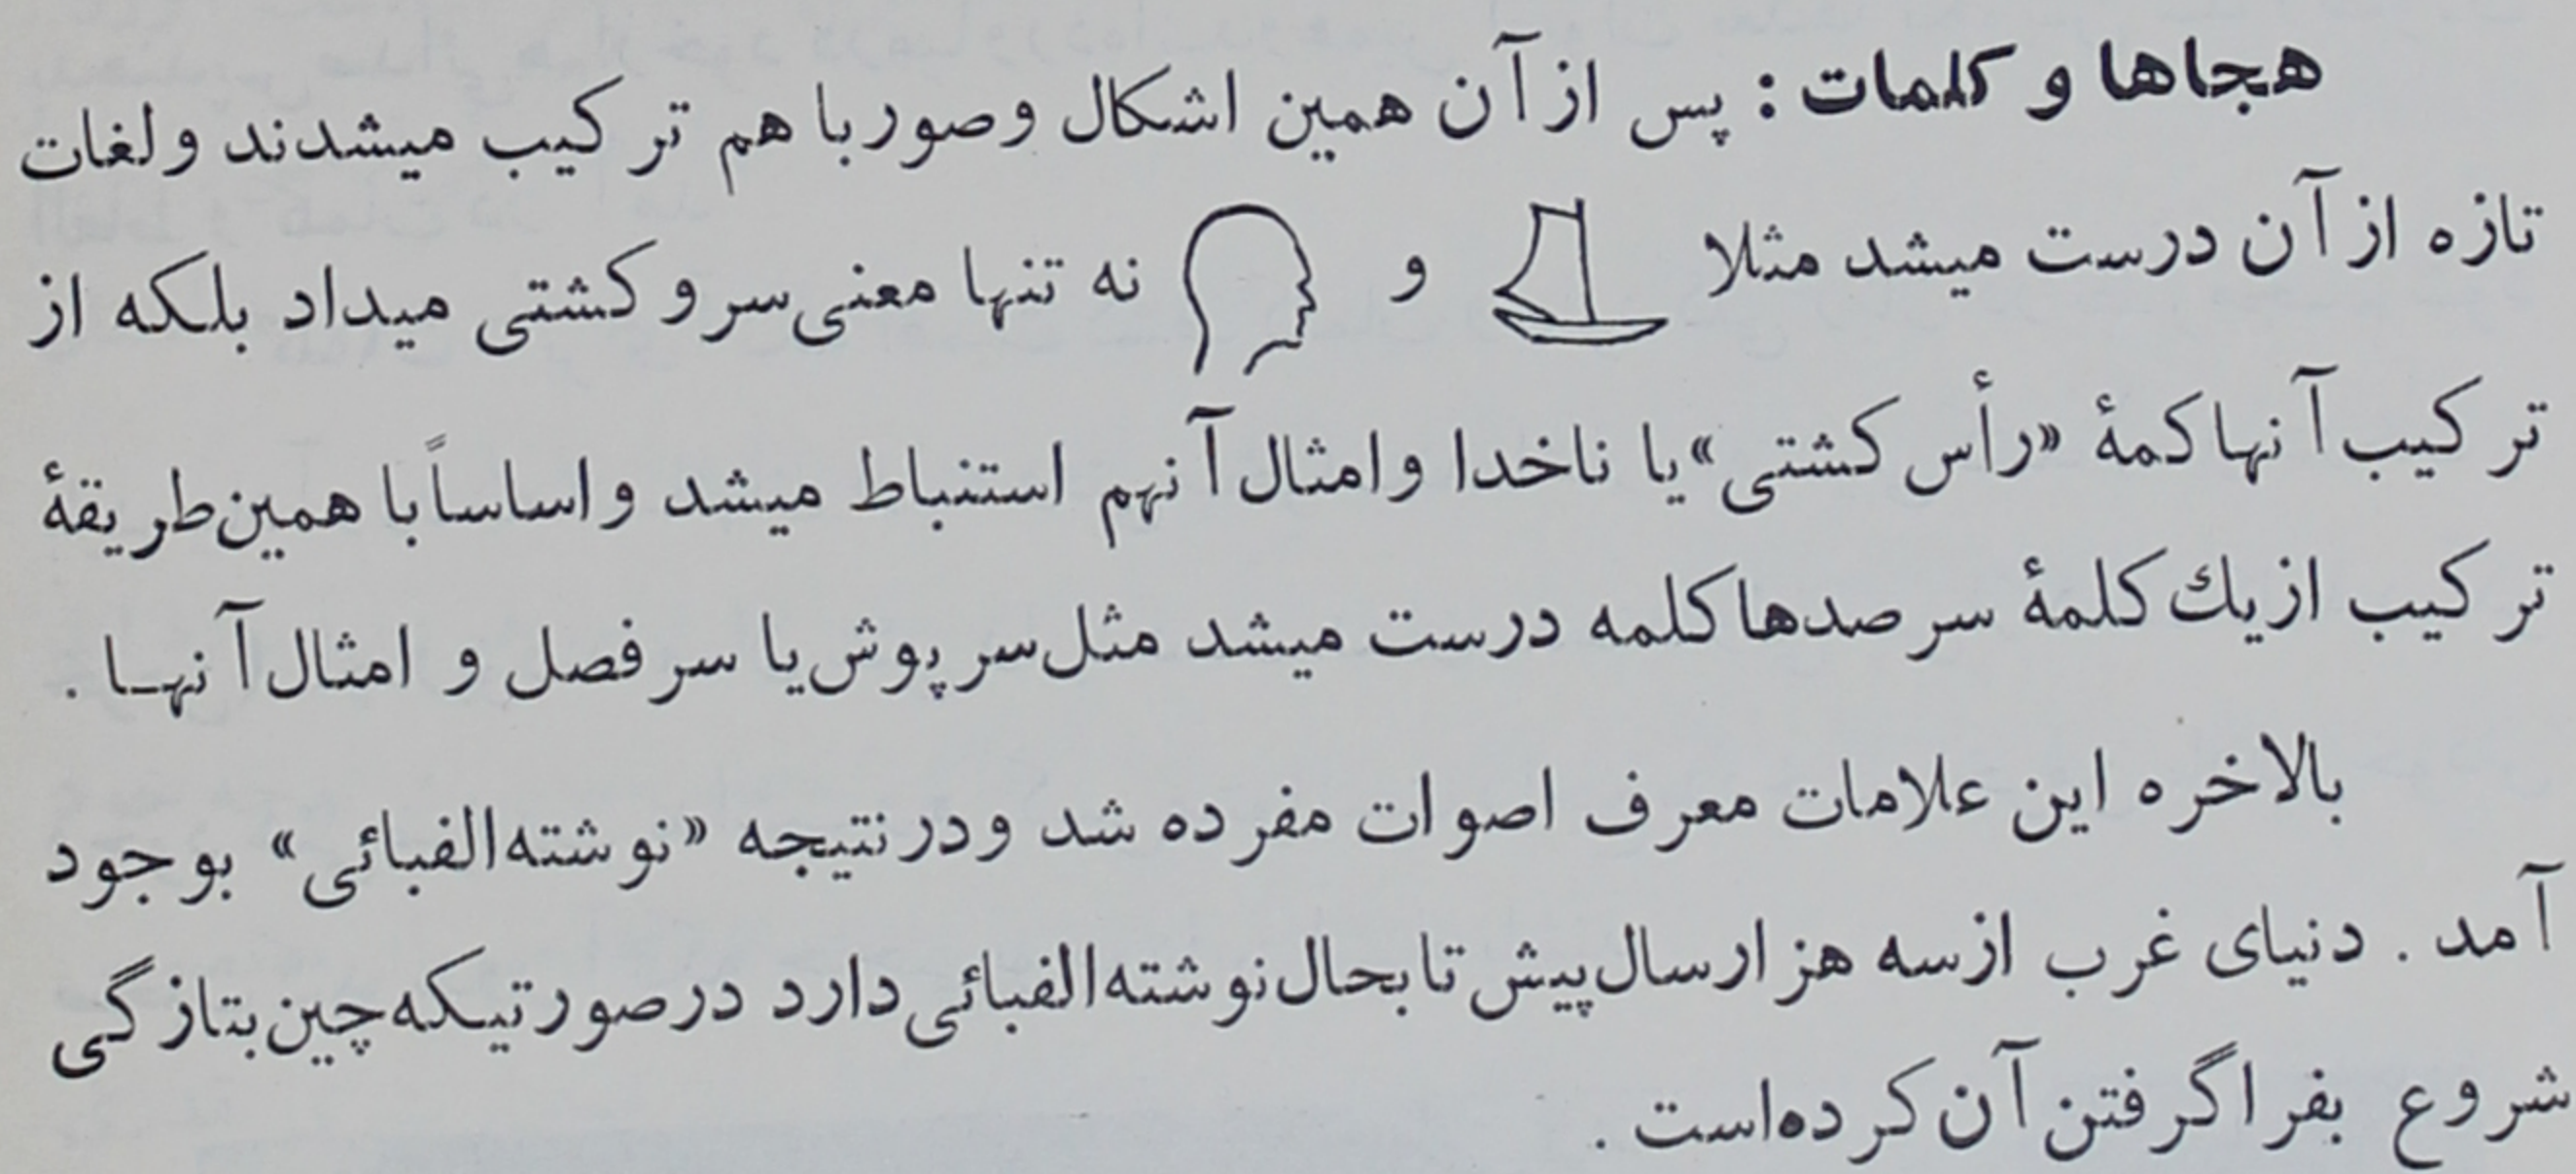 هجاها و کلمات : پس از آن همین اشکال وصور با هم ترکیب میشدند ولغات
تازه از آن درست میشد مثلا و نه تنها معنی سر و کشتی میداد بلکه از
ترکیب آنها کمهٔ «رأس کشتی» یا ناخدا وامثال آنهم استنباط میشد و اساساً با همین طریقهٔ
ترکیب از یك کلمهٔ سر صدها کلمه درست میشد مثل سر پوش یا سر فصل و امثال آنها .
بالاخره این علامات معرف اصوات مفرده شد ودر نتیجه «نوشته الفبائی» بوجود
آمد . دنیای غرب از سه هزار سال پیش تا بحال نوشته الفبائی دارد در صورتیکه چین بتازگی
شروع بفرا گرفتن آن کرده است .